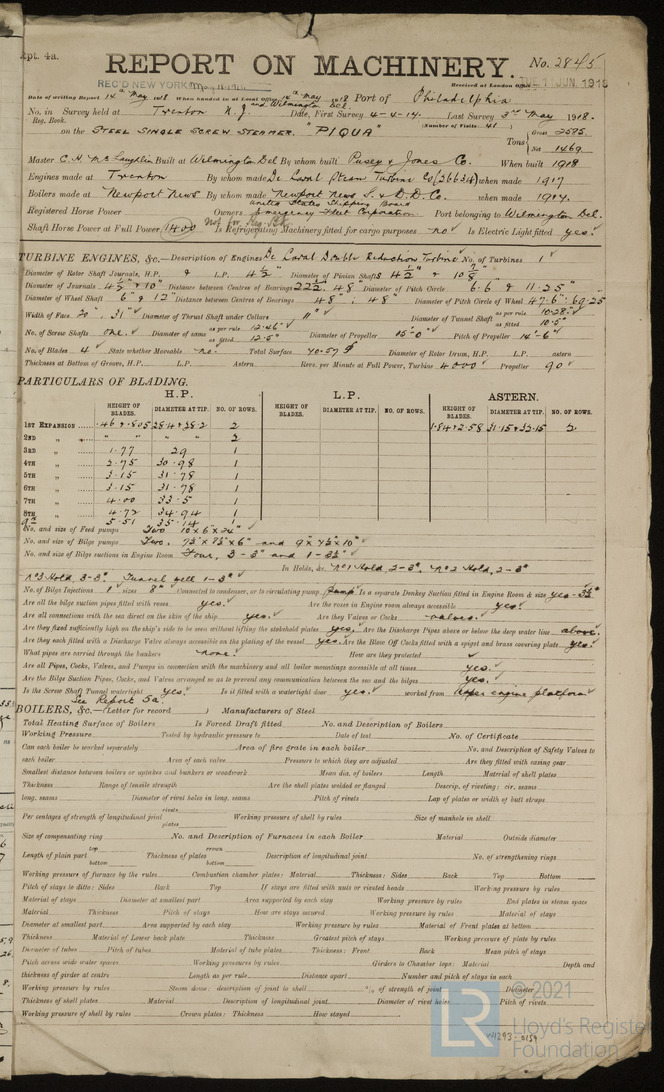 Rpt. 4a.
REPORT ON MACHINERY.
No. 2845
REC'D NEW YORK May 18 1918
Received at London Office TUE. 11 JUN. 1918
Date of writing Report 14th May 1918 When handed in at Local Office 14th May 1918 Port of Philadelphia
No. in Reg. Book. Survey held at Trenton N.J. and Wilmington Del. Date, First Survey 4-4-17. Last Survey 3rd May 1918.
(Number of Visits 41)
on the STEEL SINGLE SCREW STEAMER "PIQUA" Tons Gross 2595 Net 1469
Master C.H. McLaughlin Built at Wilmington Del By whom built Pusey & Jones Co. When built 1918
Engines made at Trenton By whom made De Laval Steam Turbine Co (26634) when made 1917
Boilers made at Newport News By whom made Newport News S. & D.D. Co. when made 1917.
Registered Horse Power Owners United States Shipping Board Emergency Fleet Corporation Port belonging to Wilmington Del.
Shaft Horse Power at Full Power 1400 Not for Reg. Bk. Is Refrigerating Machinery fitted for cargo purposes no Is Electric Light fitted yes.
TURBINE ENGINES, &c.—Description of Engines De Laval Double Reduction Turbine No. of Turbines 1
Diameter of Rotor Shaft Journals, H.P. & L.P. 4½" Diameter of Pinion Shafts 4½" & 10⅞"
Diameter of Journals 4½" & 10" Distance between Centres of Bearings 22½. 48" Diameter of Pitch Circle 6.6 & 11.25"
Diameter of Wheel Shaft 6" & 12" Distance between Centres of Bearings 48", 48" Diameter of Pitch Circle of Wheel 47.6", 69.25
Width of Face 20", 31" Diameter of Thrust Shaft under Collars 11" Diameter of Tunnel Shaft as per rule 10.28" as fitted 10.5"
No. of Screw Shafts one. Diameter of same as per rule 12.46" as fitted 12.5" Diameter of Propeller 15'-0" Pitch of Propeller 14'-6"
No. of Blades 4 State whether Moveable no. Total Surface 70.57 Diameter of Rotor Drum, H.P. L.P. astern
Thickness at Bottom of Groove, H.P. L.P. Astern Revs. per Minute at Full Power, Turbine 4000 Propeller 90
PARTICULARS OF BLADING.
H.P. L.P. ASTERN.
HEIGHT OF BLADES. DIAMETER AT TIP. NO. OF ROWS. HEIGHT OF BLADES. DIAMETER AT TIP. NO. OF ROWS. HEIGHT OF BLADES. DIAMETER AT TIP. NO. OF ROWS.
1ST EXPANSION .46 & .805 28.4 & 28.2 2 1.84 & 2.58 31.15 & 32.15 2
2ND " " " 2
3RD " 1.77 29 1
4TH " 2.75 30.98 1
5TH " 3.15 31.78 1
6TH " 3.15 31.78 1
7TH " 4.00 33.5 1
8TH " 4.72 34.94 1
9th 5.51 35.14 1
No. and size of Feed pumps Two 10" x 6" x 24"
No. and size of Bilge pumps Two. 7½" x 7½" x 6" and 9" x 7½" x 10"
No. and size of Bilge suctions in Engine Room Four, 3-3" and 1-3½"
In Holds, &c. No 1 Hold, 2-3", No 2 Hold, 2-3"
No 3 Hold, 3-3". Tunnel well 1-3"
No. of Bilge Injections 1 sizes 8" Connected to condenser, or to circulating pump Pump Is a separate Donkey Suction fitted in Engine Room & size yes-3½"
Are all the bilge suction pipes fitted with roses yes. Are the roses in Engine room always accessible yes
Are all connections with the sea direct on the skin of the ship yes. Are they Valves or Cocks valves.
Are they fixed sufficiently high on the ship's side to be seen without lifting the stokehold plates yes, Are the Discharge Pipes above or below the deep water line above.
Are they each fitted with a Discharge Valve always accessible on the plating of the vessel yes. Are the Blow Off Cocks fitted with a spigot and brass covering plate yes.
What pipes are carried through the bunkers none. How are they protected
Are all Pipes, Cocks, Valves, and Pumps in connection with the machinery and all boiler mountings accessible at all times yes.
Are the Bilge Suction Pipes, Cocks, and Valves arranged so as to prevent any communication between the sea and the bilges yes.
Is the Screw Shaft Tunnel watertight yes. Is it fitted with a watertight door yes. worked from upper engine platform
See Report 5a.
BOILERS, &c.—(Letter for record ) Manufacturers of Steel
Total Heating Surface of Boilers Is Forced Draft fitted No. and Description of Boilers
Working Pressure Tested by hydraulic pressure to Date of test No. of Certificate
Can each boiler be worked separately Area of fire grate in each boiler No. and Description of Safety Valves to
each boiler Area of each valve Pressure to which they are adjusted Are they fitted with easing gear
Smallest distance between boilers or uptakes and bunkers or woodwork Mean dia. of boilers Length Material of shell plates
Thickness Range of tensile strength Are the shell plates welded or flanged Descrip. of riveting: cir. seams
long. seams Diameter of rivet holes in long. seams Pitch of rivets Lap of plates or width of butt straps
Per centages of strength of longitudinal joint rivets plates Working pressure of shell by rules Size of manhole in shell
Size of compensating ring No. and Description of Furnaces in each Boiler Material Outside diameter
Length of plain part top bottom Thickness of plates crown bottom Description of longitudinal joint No. of strengthening rings
Working pressure of furnace by the rules Combustion chamber plates: Material Thickness: Sides Back Top Bottom
Pitch of stays to ditto: Sides Back Top If stays are fitted with nuts or riveted heads Working pressure by rules
Material of stays Diameter at smallest part Area supported by each stay Working pressure by rules End plates in steam space
Material Thickness Pitch of stays How are stays secured Working pressure by rules Material of stays
Diameter at smallest part Area supported by each stay Working pressure by rules Material of Front plates at bottom
Thickness Material of Lower back plate Thickness Greatest pitch of stays Working pressure of plate by rules
Diameter of tubes Pitch of tubes Material of tube plates Thickness: Front Back Mean pitch of stays
Pitch across wide water spaces Working pressures by rules Girders to Chamber tops: Material Depth and
thickness of girder at centre Length as per rule Distance apart Number and pitch of stays in each
Working pressure by rules Steam dome: description of joint to shell % of strength of joint Diameter
Thickness of shell plates Material Description of longitudinal joint Diameter of rivet holes Pitch of rivets
Working pressure of shell by rules Crown plates: Thickness How stayed
W1293-0154
LR © 2021
Lloyd's Register
Foundation